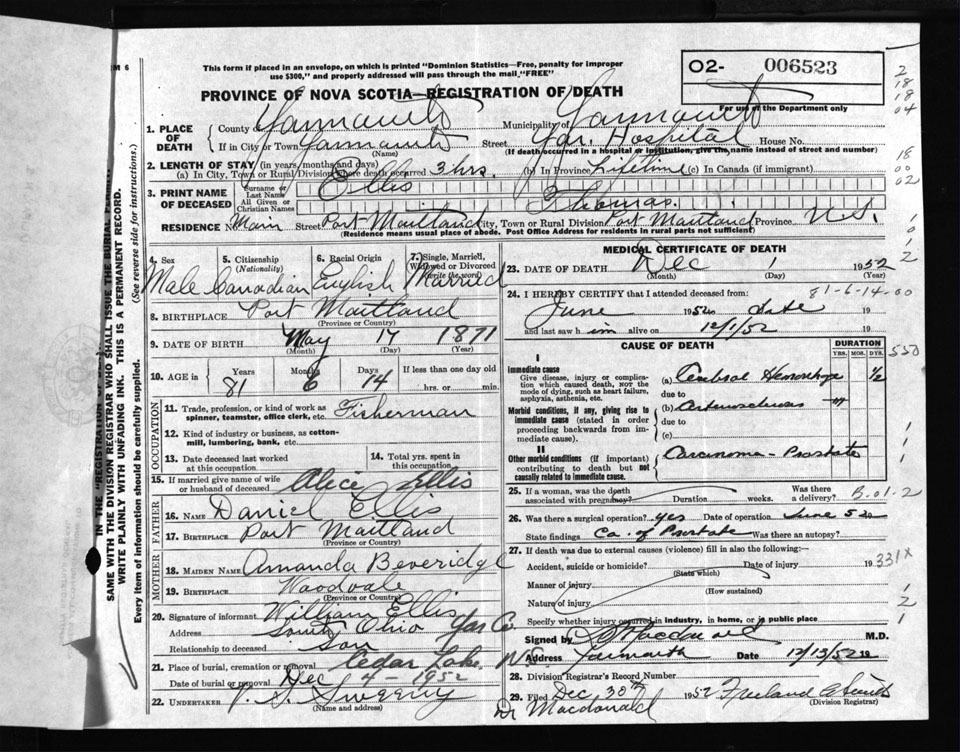 This form if placed in an envelope, on which is printed "Dominion Statistics—Free, penalty for improper
use $300," and properly addressed will pass through the mail "FREE"
PROVINCE OF NOVA SCOTIA—REGISTRATION OF DEATH
O2- 006523
For use of the Department only
1. PLACE OF DEATH { County of Yarmouth Municipality of Yarmouth
If in City or Town Yarmouth Street Yar. Hospital House No.
(Name) (If death occurred in a hospital or institution, give the name instead of street and number)
2. LENGTH OF STAY (in years, months and days)
(a) In City, Town or Rural Division where death occurred 3 hrs. (b) In Province Lifetime (c) In Canada (if immigrant)
3. PRINT NAME OF DECEASED { Surname or Last Name Ellis
All Given or Christian Names Thomas.
RESIDENCE No. Main Street Port Maitland City, Town or Rural Division Port Maitland Province N.S.
(Residence means usual place of abode. Post Office Address for residents in rural parts not sufficient)
4. Sex 5. Citizenship (Nationality) 6. Racial Origin 7. Single, Married, Widowed or Divorced (write the word)
Male Canadian English Married
8. BIRTHPLACE Port Maitland
(Province or Country)
9. DATE OF BIRTH May 17 1871
(Month) (Day) (Year)
10. AGE in { Years Months Days If less than one day old
81 6 14 hrs. or min.
OCCUPATION
11. Trade, profession, or kind of work as spinner, teamster, office clerk, etc. Fisherman
12. Kind of industry or business, as cotton-mill, lumbering, bank, etc.
13. Date deceased last worked at this occupation
14. Total yrs. spent in this occupation
15. If married give name of wife or husband of deceased Alice Ellis
FATHER
16. NAME Daniel Ellis
17. BIRTHPLACE Port Maitland
(Province or Country)
MOTHER
18. MAIDEN NAME Amanda Beveridge
19. BIRTHPLACE Woodvale
(Province or Country)
20. Signature of informant William Ellis
Address South Ohio Yar Co.
Relationship to deceased Son
21. Place of burial, cremation or removal Cedar Lake, N.S.
Date of burial or removal Dec 4 - 1952
22. UNDERTAKER V. S. Sweeny
(Name and address)
MEDICAL CERTIFICATE OF DEATH
23. DATE OF DEATH Dec 1 1952
(Month) (Day) (Year)
81-6-14-00
24. I HEREBY CERTIFY that I attended deceased from
June 1952 to date 19
and last saw him alive on 12/1/52 19
CAUSE OF DEATH
DURATION
YRS. MOS. DYS.
I
Immediate cause
Give disease, injury or complication which caused death, NOT the mode of dying, such as heart failure, asphyxia, asthenia, etc.
(a) Cerebral Hemorrhage ½
due to
Morbid conditions, if any, giving rise to immediate cause (stated in order proceeding backwards from immediate cause).
(b)
due to
(c)
II
Other morbid conditions (if important) contributing to death but not causally related to immediate cause.
Carcinoma - Prostate
25. If a woman, was the death associated with pregnancy? Duration weeks. Was there a delivery? B-01-2
26. Was there a surgical operation? yes Date of operation June 52
State findings Ca. of Prostate Was there an autopsy?
27. If death was due to external causes (violence) fill in also the following:—
Accident, suicide or homicide? Date of injury 19 331X
(State which)
Manner of injury
(How sustained)
Nature of injury
Specify whether injury occurred in industry, in home, or in public place
Signed by Macdonald M.D.
Address Yarmouth Date 12/13/52 19
28. Division Registrar's Record Number
29. Filed Dec 30th 1952
(Division Registrar)
Dr Macdonald
(See reverse side for instructions.)
WRITE PLAINLY WITH UNFADING INK. THIS IS A PERMANENT RECORD.
Every item of information should be carefully supplied.